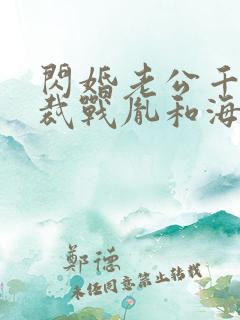 閃婚老公千
裁戰胤和海
鄭德
未經同意禁止轉載